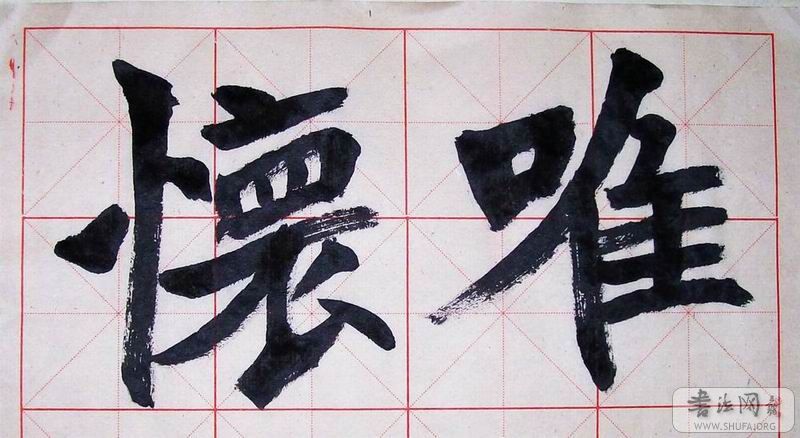 唯
懷
书法网
WWW.SHUFA.ORG